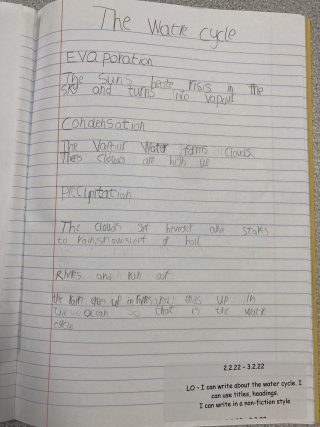 The Watir cycle
EVaporation
The Suns heate risis in the
sky and turns into vapour
Condensation
The Water forms clouds.
Thes clouds are high up
Precipitation
The clouds get and starts
to rain, snow, sleet of hail
Rivirs and run off
the rain up in rivirs ends up in
the ocean so that is the
cycle
2.2.22 - 3.2.22
LO - I can write about the water cycle. I
can use titles, headings.
I can write in a non-fiction style